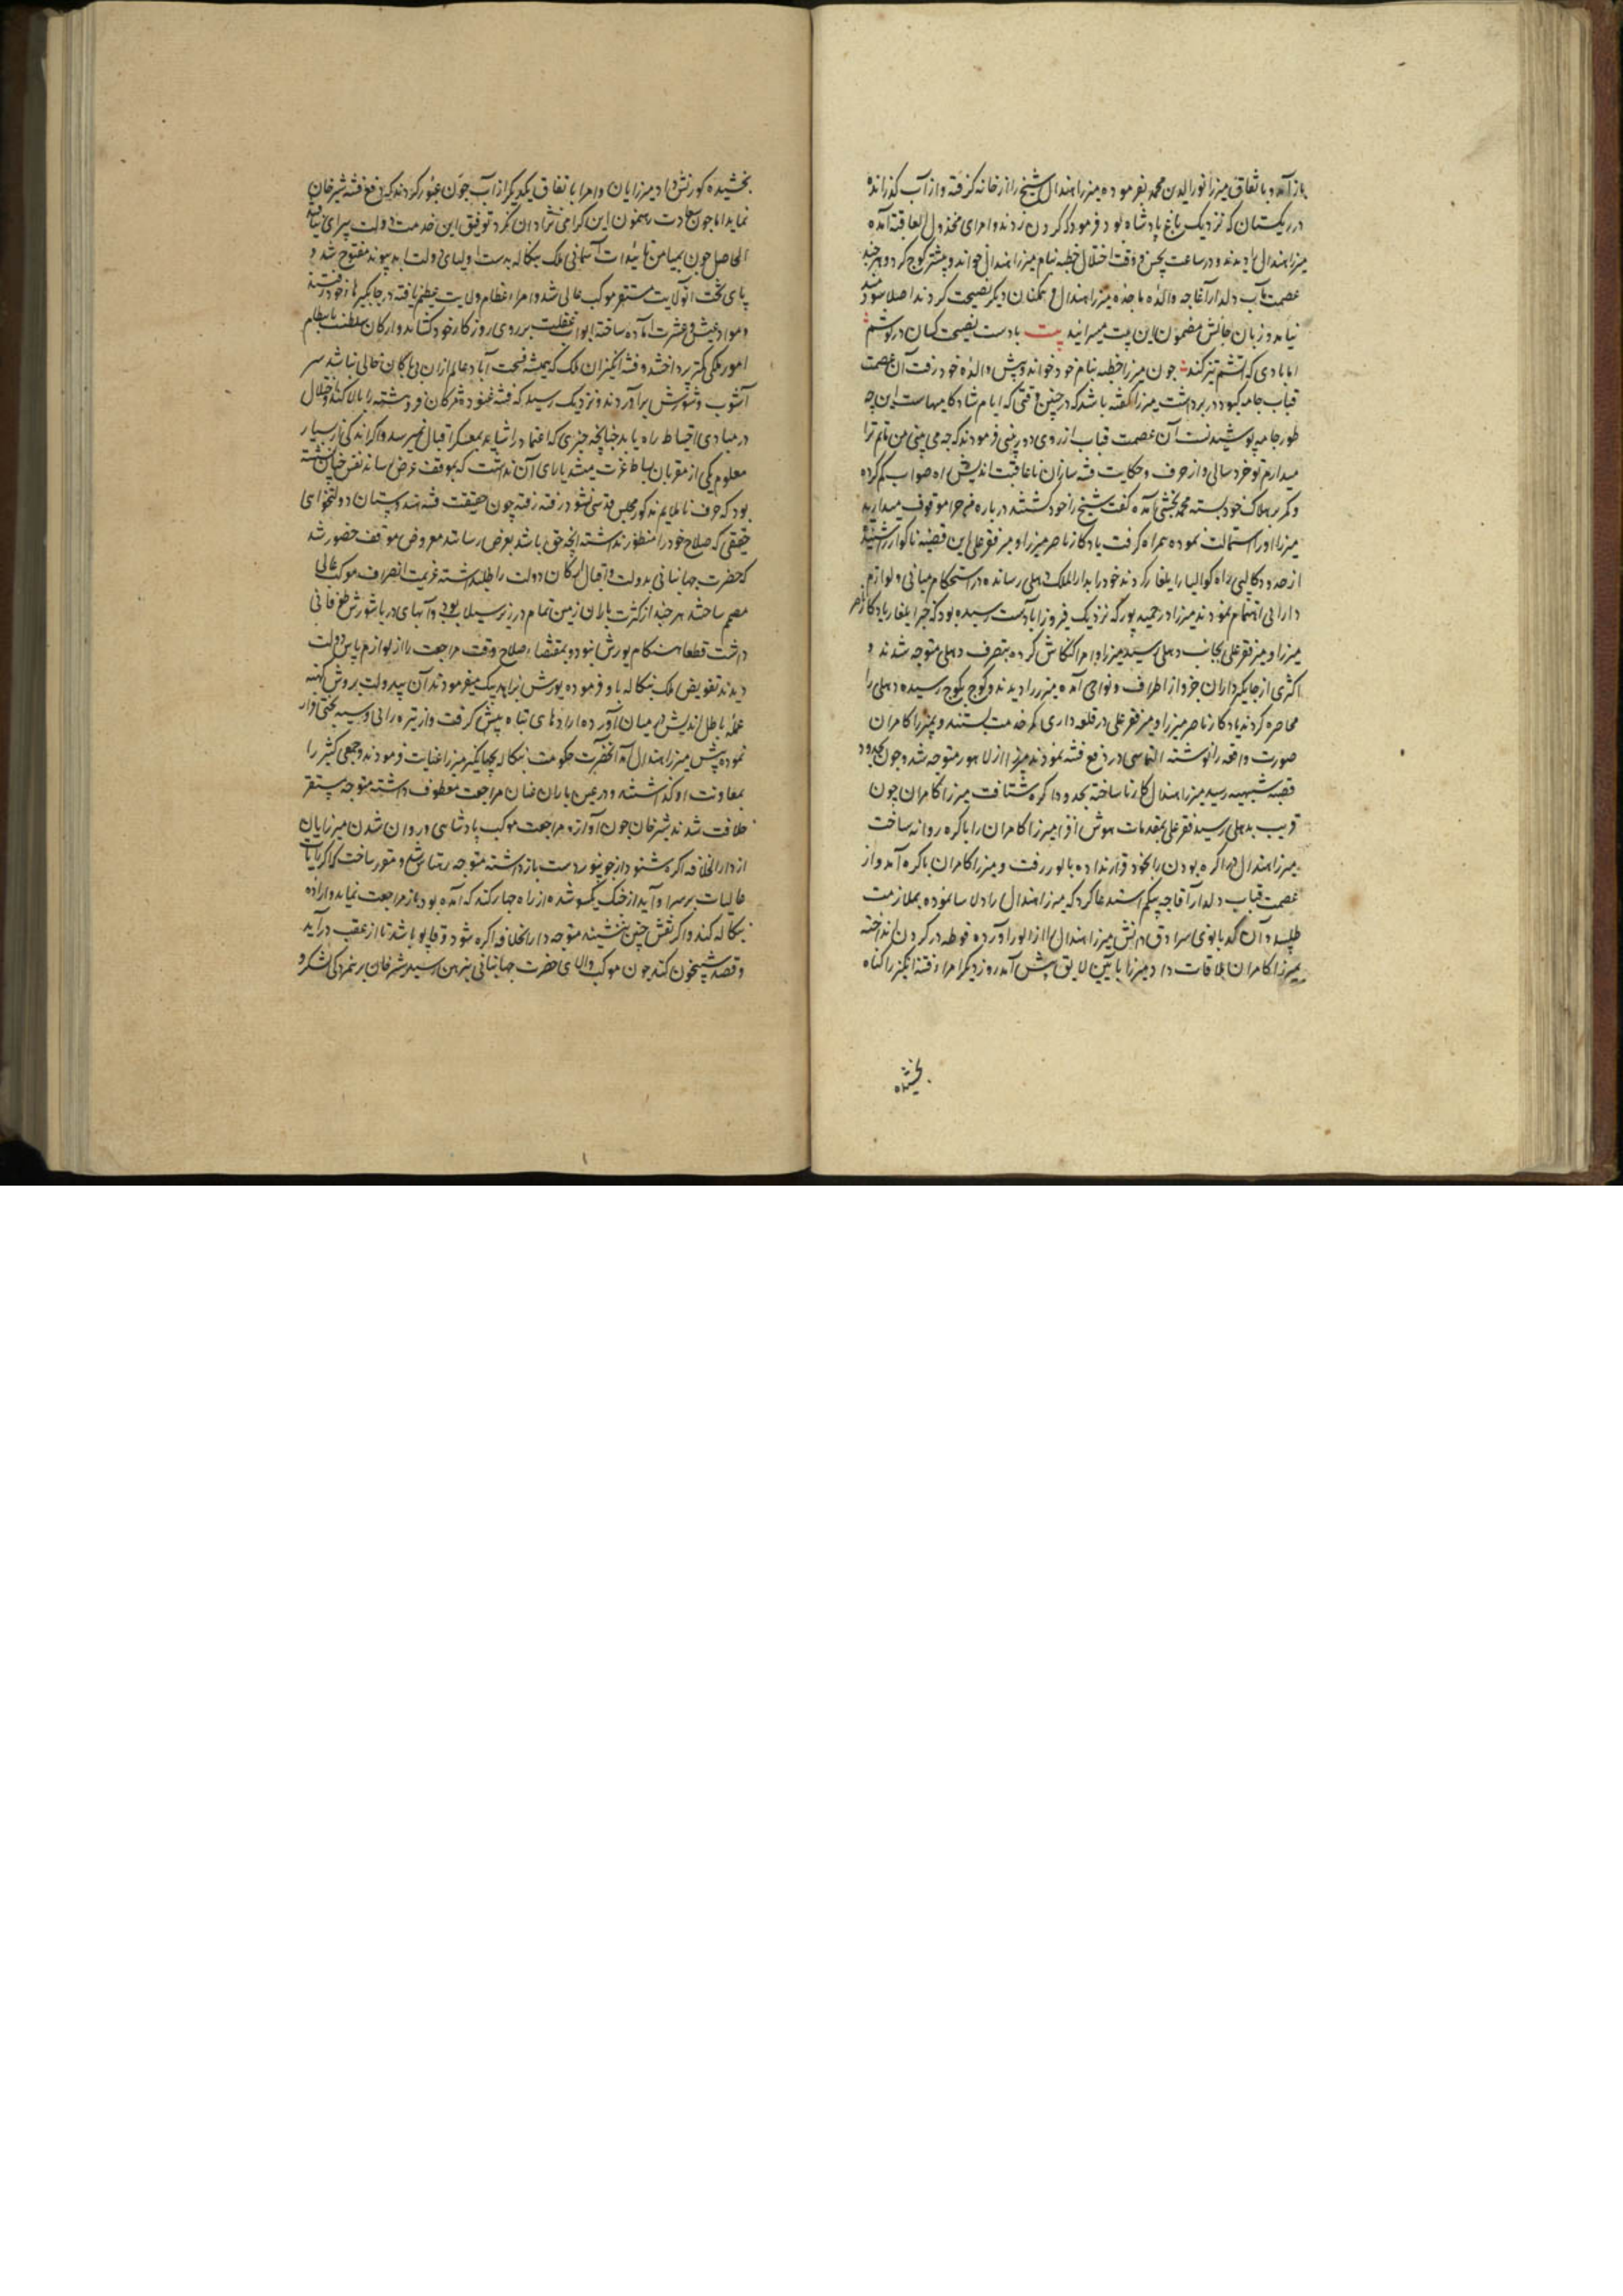 باز آمد و باتفاق میرزا نورالدین محمد بفرموده میرزا هندال شیخ را از خانه گرفته و از آب گذرانده
در ریکستان که نزدیک باغ پادشاه بود فرمود که گردن زدند و امرای مخذول العاقبة آمده
میرزا هندال را دیدند و در ساعت نحس و وقت اختلال خطبه بنام میرزا هندال خواند و پیشتر کوچ کرد و هر چند
عصمت مآب دلدار آغاچه والده ماجده میرزا هندال و همکنان دیگر نصیحت کردند اصلا سودمند
نیامد و زبان حالش مضمون این بیت میسرائید بیت بادست نصیحت کسان در گوشم
اما بادی که آتشم تیز کند چون میرزا خطبه بنام خود خواند و پیش والده خود رفت آن عصمت
قباب جامه کبود در بر داشت میرزا گفته باشد که در چنین وقتی که ایام شادکامیهاست این چه
طور جامه پوشیدنست آن عصمت قباب از روی دوربینی فرمودند که چه می بینی من ماتم ترا
میدارم تو خرد سالی و از حرف و حکایت فتنه سازان ناعاقبت اندیش راه صواب گم کرده
و کمر بر هلاک خود بسته محمد بخشی آمده گفت شیخ را خود کشتند در باره من چرا موقوف میدارید
میرزا او را استمالت نموده همراه گرفت یادگار ناصر میرزا و میر فقر علی این قضیه ناگوار را شنیده
از حدود کالپی راه گوالیار ایلغار کردند خود را بدارالملک دهلی رسانده در استحکام مبانی و لوازم
دارایی اهتمام نمودند میرزا در حمیدپور که نزدیک فیروزاباد است رسیده بود که خبر ایلغار یادگار ناصر
میرزا و میر فقر علی بجانب دهلی رسید میرزا و امرا کنکاش کرده بتصرف دهلی متوجه شدند و
اکثری از جایگیرداران خرد از اطراف و نواحی آمده میرزا را دیدند و کوچ بکوچ رسیده دهلی را
محاصره کردند یادگار ناصر میرزا و میر فقر علی در قلعه داری کمر خدمت بستند و بمیرزا کامران
صورت واقعه را نوشته التماس در دفع فتنه نمودند میرزا از لاهور متوجه شد و چون بحدود
قصبه رسید میرزا هندال کار ناساخته بحدود اگره شتافت میرزا کامران چون
قریب بدهلی رسید فقر علی بمقدمات هوش افزا میرزا کامران را باگره روانه ساخت
میرزا هندال در اگره بودن را بخود قرار نداده بالور رفت و میرزا کامران باگره آمد و از
عصمت قباب دلدار آغاچه بیگم استدعا کرد که میرزا هندال را دلاسا نموده بملازمت
طلبید و آن کدبانوی سرادق دانش میرزا هندال را از الور آورده فوطه در گردن انداخته
بمیرزا کامران ملاقات داد میرزا بآیین لایق پیش آمد روز دیگر امرا فتنه انگیز را گناه
بخشیده
بخشیده کورنش داد میرزایان و امرا باتفاق یکدیگر از آب جون عبور کردند که دفع فتنه شیرخان
نمایند اما چون سعادت رهنمون این گرامی نژادان نبود توفیق این خدمت دولت پیرای نیافتند
الحاصل چون بمیامن تائیدات آسمانی ملک بنگاله بدست اولیای دولت ابد پیوند مفتوح شد و
پای تخت آن ولایت مستقر موکب عالی شد و امراء عظام ولایت عظیم یافته در جایگیرها خود رفتند
و مواد عیش و عشرت آماده ساخته ابواب غفلت بر روی روزگار خود گشادند و ارکان سلطنت بانتظام
امور ملکی کمتر پرداختند و فتنه انگیزان ملک که همیشه فسحت آباد عالم از آن بی باکان خالی نباشد سر
آشوب و شورش برآوردند و نزدیک رسید که فتنه غنوده مژگان فروهشته را بالا کند و خلال
در مبادی احتیاط راه یابد چنانچه خبری که اعتماد را شاید بمعسکر اقبال نمیرسد و اگر اندکی از بسیار
معلوم یکی از مقربان بساط عزت میشد یارای آن نداشت که بموقف عرض رساند نقش چنان نشسته
بود که حرف ناملایم مذکور مجلس قدسی نشود رفته رفته چون حقیقت فتنه هندوستان دولتخواهی
حقیقی که صلاح خود را منظور نداشته آنچه حق باشد بعرض رسانند معروض موقف حضور شد
که حضرت جهانبانی بدولت و اقبال ارکان دولت را طلبداشته عزیمت انصراف موکب عالی
مصمم ساختند هر چند از کثرت باران زمین تمام در زیر سیلاب بود و آبهای دریا شورش طوفانی
داشت قطعا هنگام یورش نبود و بمقتضاء صلاح وقت مراجعت را از لوازم پاس دولت
دیدند تفویض ملک بنگاله باو فرموده یورش بزاهد بیک میفرمودند آن بیدولت بروش کهنه
عمله باطل اندیش در میان آورده ارادهای تباه پیش گرفت و از تیره رائی و سیه بختی فرار
نموده پیش میرزا هندال آمد آنحضرت حکومت بنگاله بجهانگیر میرزا عنایت فرمودند و جمعی کثیر را
بمعاونت او گذاشتند و در عین باران عنان مراجعت معطوف داشته متوجه مستقر
خلافت شدند شیرخان چون آوازه مراجعت موکب پادشاهی و روان شدن میرزایان
از دارالخلافه اگره شنود از جونپور دست بازداشته متوجه رهتاس شد و مقرر ساخت که اگر رایات
عالیات بر سر او آید از جنگ یکسو شده از راه جهارکند که آمده بود باز مراجعت نماید و اراده
بنگاله کند و اگر نقش چنین ننشیند متوجه دارالخلافه اگره شود و قابو باشد تا از عقب درآید
و قصد شبیخون کند چون موکب والای حضرت جهانبانی بترهن رسید شیرخان بر نمردکی لشکر و